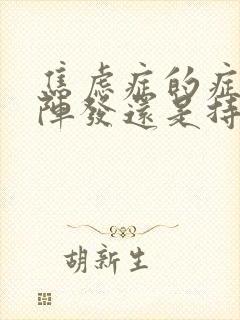 焦虑症的症
陣發還是持
胡新生